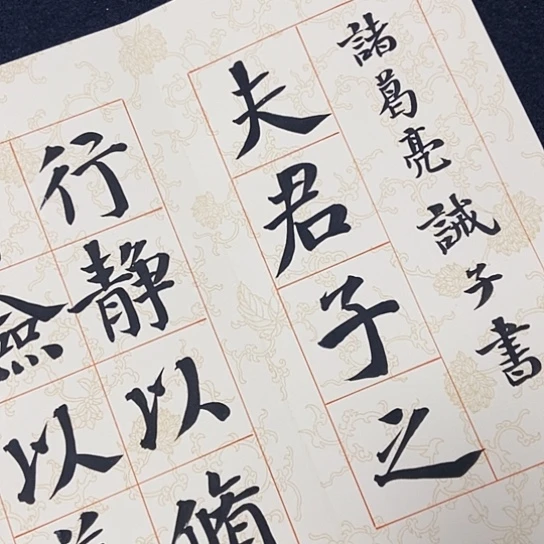 諸葛亮誡子書
夫君子之
行静以脩
以